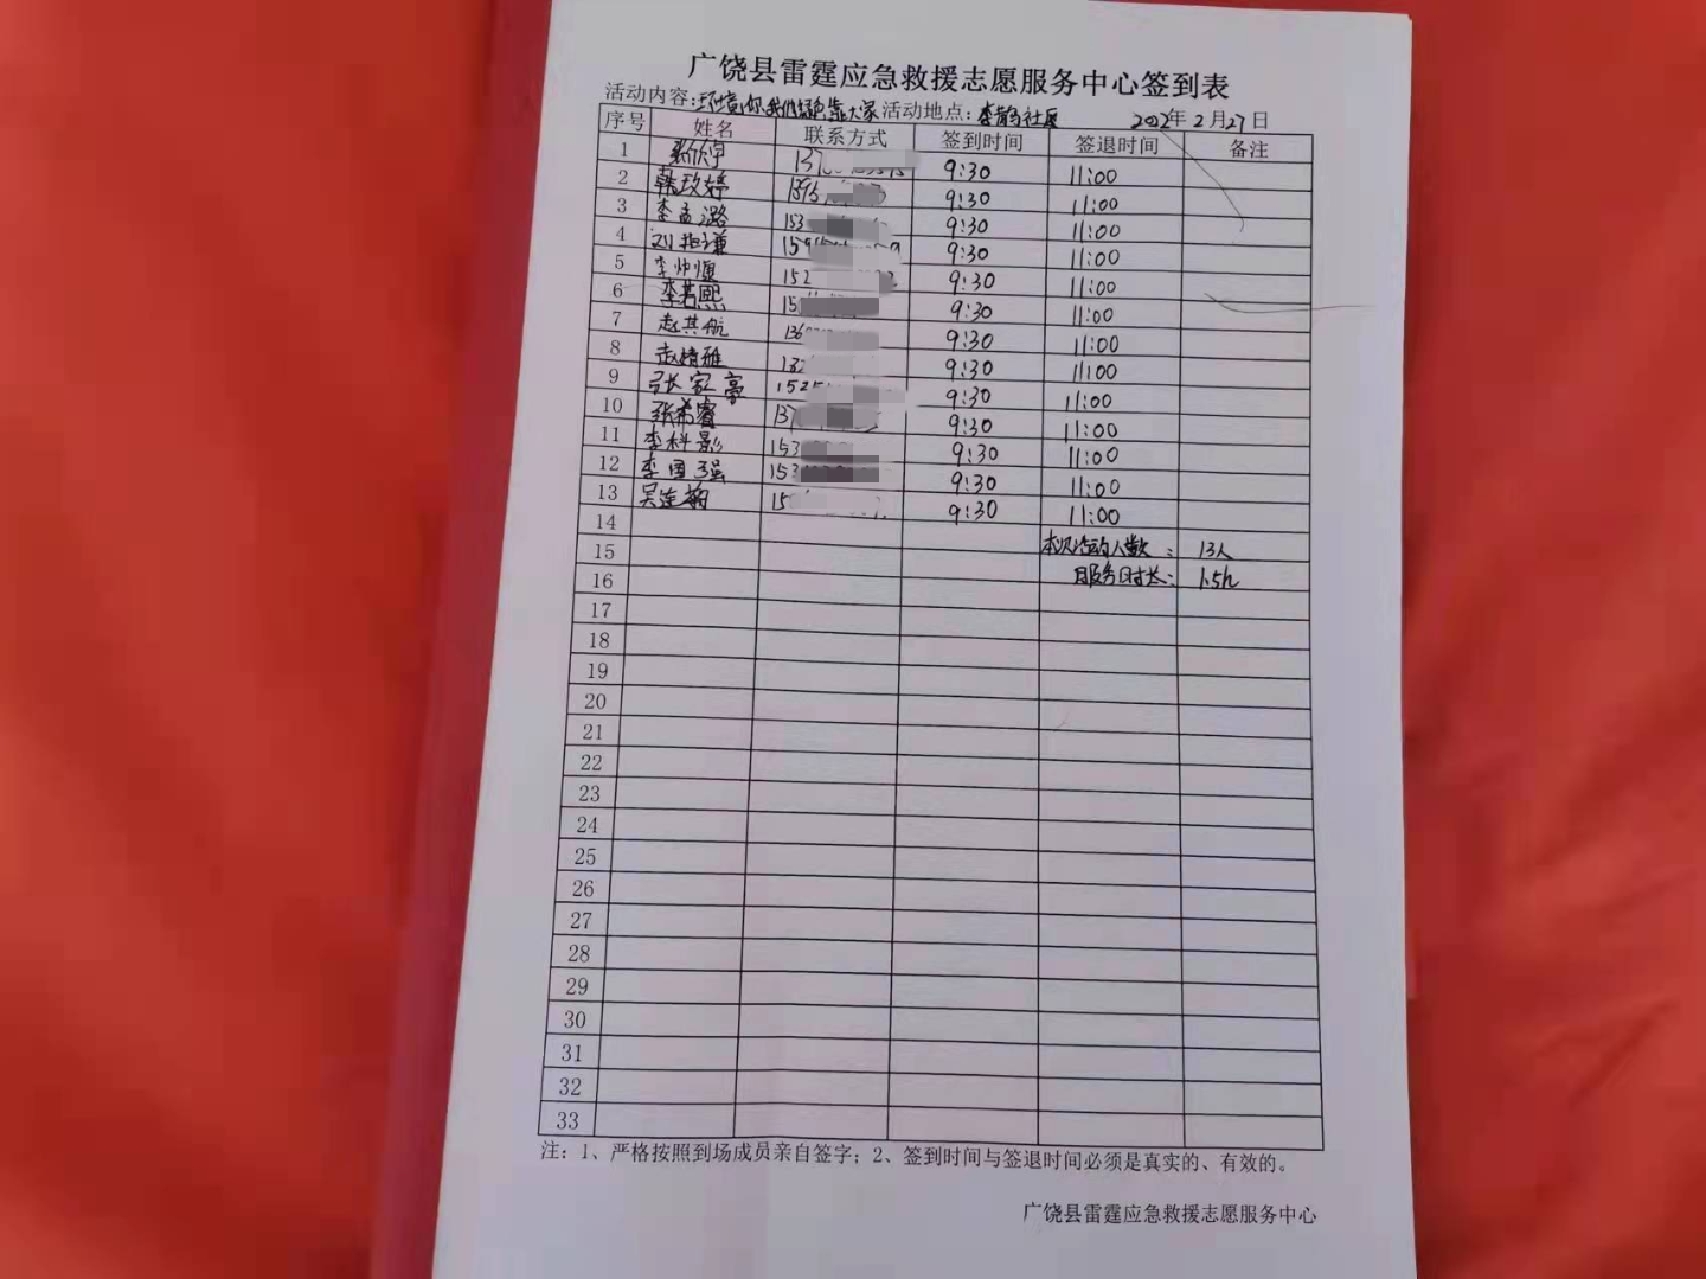 广饶县雷霆应急救援志愿服务中心签到表
活动内容: 靠大家 活动地点: 社区 2022年2月27日
序号 姓名 联系方式 签到时间 签退时间 备注
1 137 9:30 11:00
2 韩玫婷 1395 9:30 11:00
3 李孟潞 153 9:30 11:00
4 刘 谦 159 9 9:30 11:00
5 李 152 9:30 11:00
6 李若熙 15 9:30 11:00
7 赵其航 136 9:30 11:00
8 赵婧雅 9:30 11:00
9 张家豪 1525 9:30 11:00
10 张希睿 137 9:30 11:00
11 李科影 153 9:30 11:00
12 李国强 153 9:30 11:00
13 吴连 15 9:30 11:00
14
15 本次活动人数: 13人
16 服务时长: 1.5h
17
18
19
20
21
22
23
24
25
26
27
28
29
30
31
32
33
注: 1、严格按照到场成员亲自签字; 2、签到时间与签退时间必须是真实的、有效的。
广饶县雷霆应急救援志愿服务中心